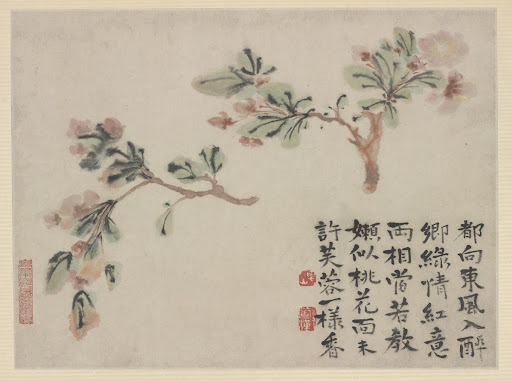 都向東風入醉
鄉綠情紅意
兩相當若教
嬾似桃花面未
許芙蓉一樣香